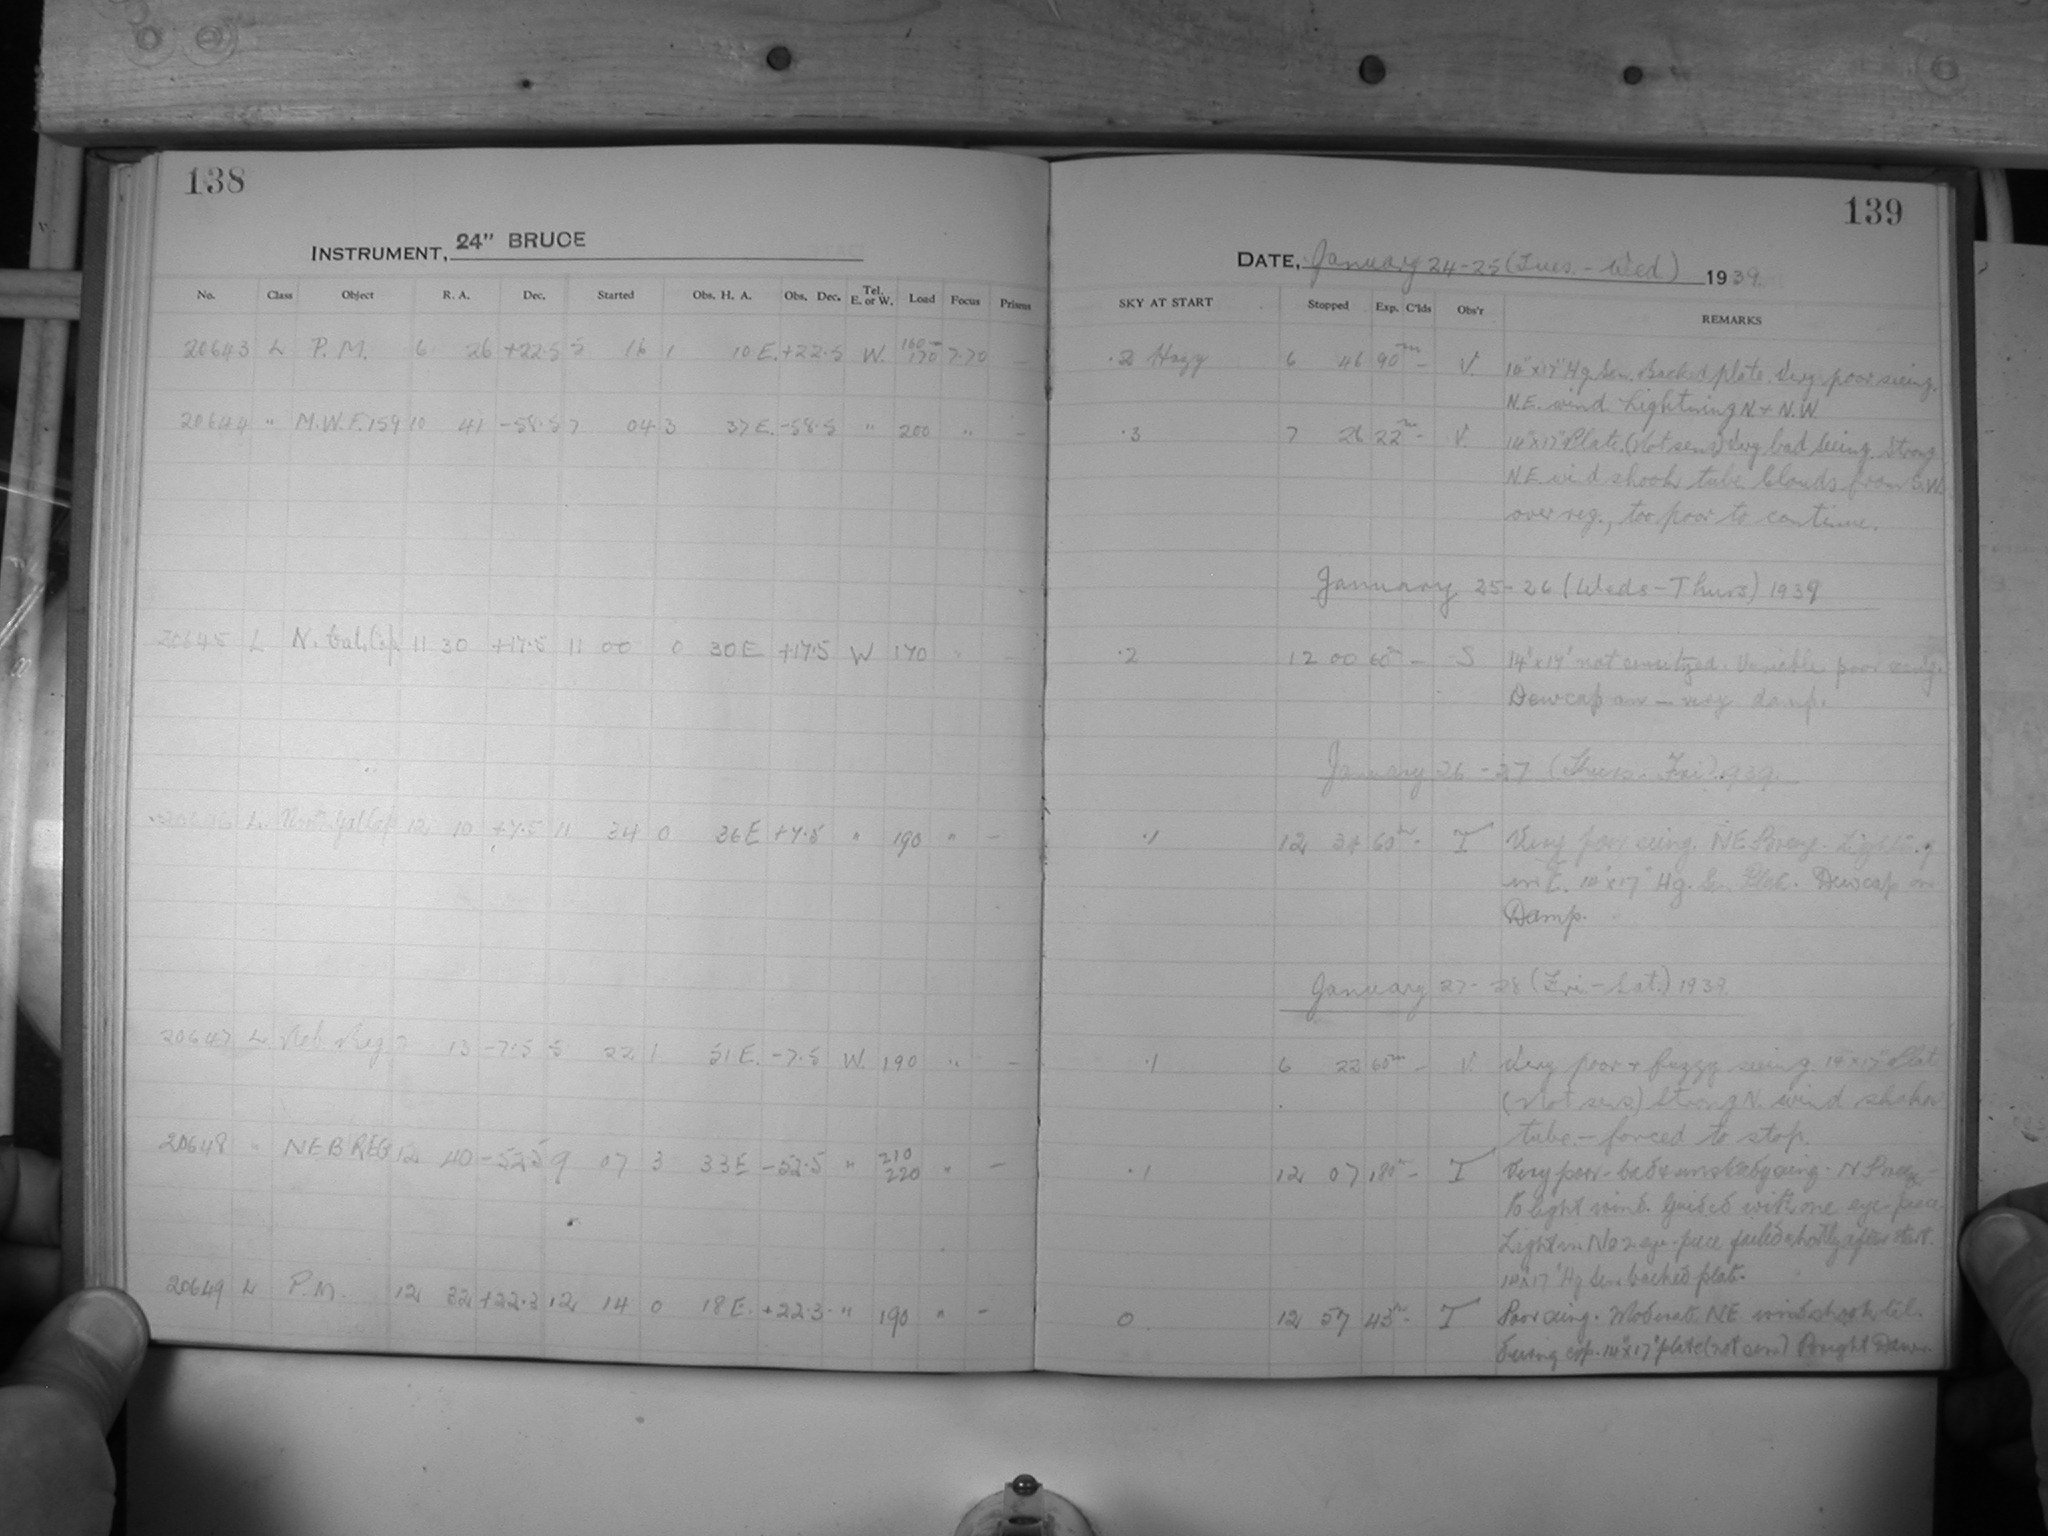 138
INSTRUMENT, 24" BRUCE
No. Class Object R. A. Dec. Started Obs. H. A. Obs. Dec. Tel. E. or W. Load Focus Prisms
20643 L P.M. 6 26 +22.5 5 16 1 10 E. +22.5 W. 160- 170 7.70 -
20644 " M.W.F. 159 10 41 -58.5 7 04 3 37 E. -58.5 " 200 " -
20645 L N. Gal. Cap 11 30 +17.5 11 00 0 30 E +17.5 W 170 " -
20646 L. North Gal Cap 12 10 +7.5 11 34 0 36 E +7.5 " 190 " -
20647 L. Neb. Reg. 7 13 -7.5 5 22 1 51 E. -7.5 W. 190 " -
20648 " NEB REG 12 40 -52.5 9 07 3 33 E -52.5 " 210 220 " -
20649 L P.M. 12 32 +22.3 12 14 0 18 E. +22.3 " 190 " -
139
DATE, January 24-25 (Tues. - Wed) 1939.
SKY AT START Stopped Exp. C'lds Obs'r REMARKS
.2 Hazy 6 46 90m - V. 14"x17" Hg. Sen. Backed plate. Very poor seeing.
N.E. wind Lightning N + N.W
.3 7 26 22m - V. 14"x17" Plate. (Not sens) Very bad seeing. Strong
N.E. wind shook tube Clouds from S.W.
over reg., too poor to continue.
January 25-26 (Weds-Thurs) 1939
.2 12 00 60m - S 14"x17" not sensitized. Variable poor seeing.
Dewcap on - very damp.
January 26-27 (Thurs. Fri) 1939.
.1 12 34 60m - T Very poor seeing. NE Breeze. Lightning
in E. 14"x17" Hg. Sen. Plate. Dewcap on
Damp.
January 27-28 (Fri.-Sat.) 1939.
.1 6 22 60m - V. Very poor + fuzzy seeing. 14"x17" Plate
(Not sens) Strong N. wind shakes
tube - forced to stop.
.1 12 07 180m - T Very poor - bad & unsteady seeing. N Breeze
to light wind. Guided with one eye-piece
Light in No 2 eye-piece failed shortly after start.
14"x17" Hg Sen. backed plate.
0 12 57 43m - T Poor seeing. Moderate NE wind shook tel.
during exp. 14"x17" plate (not sens) Bright Dawn.